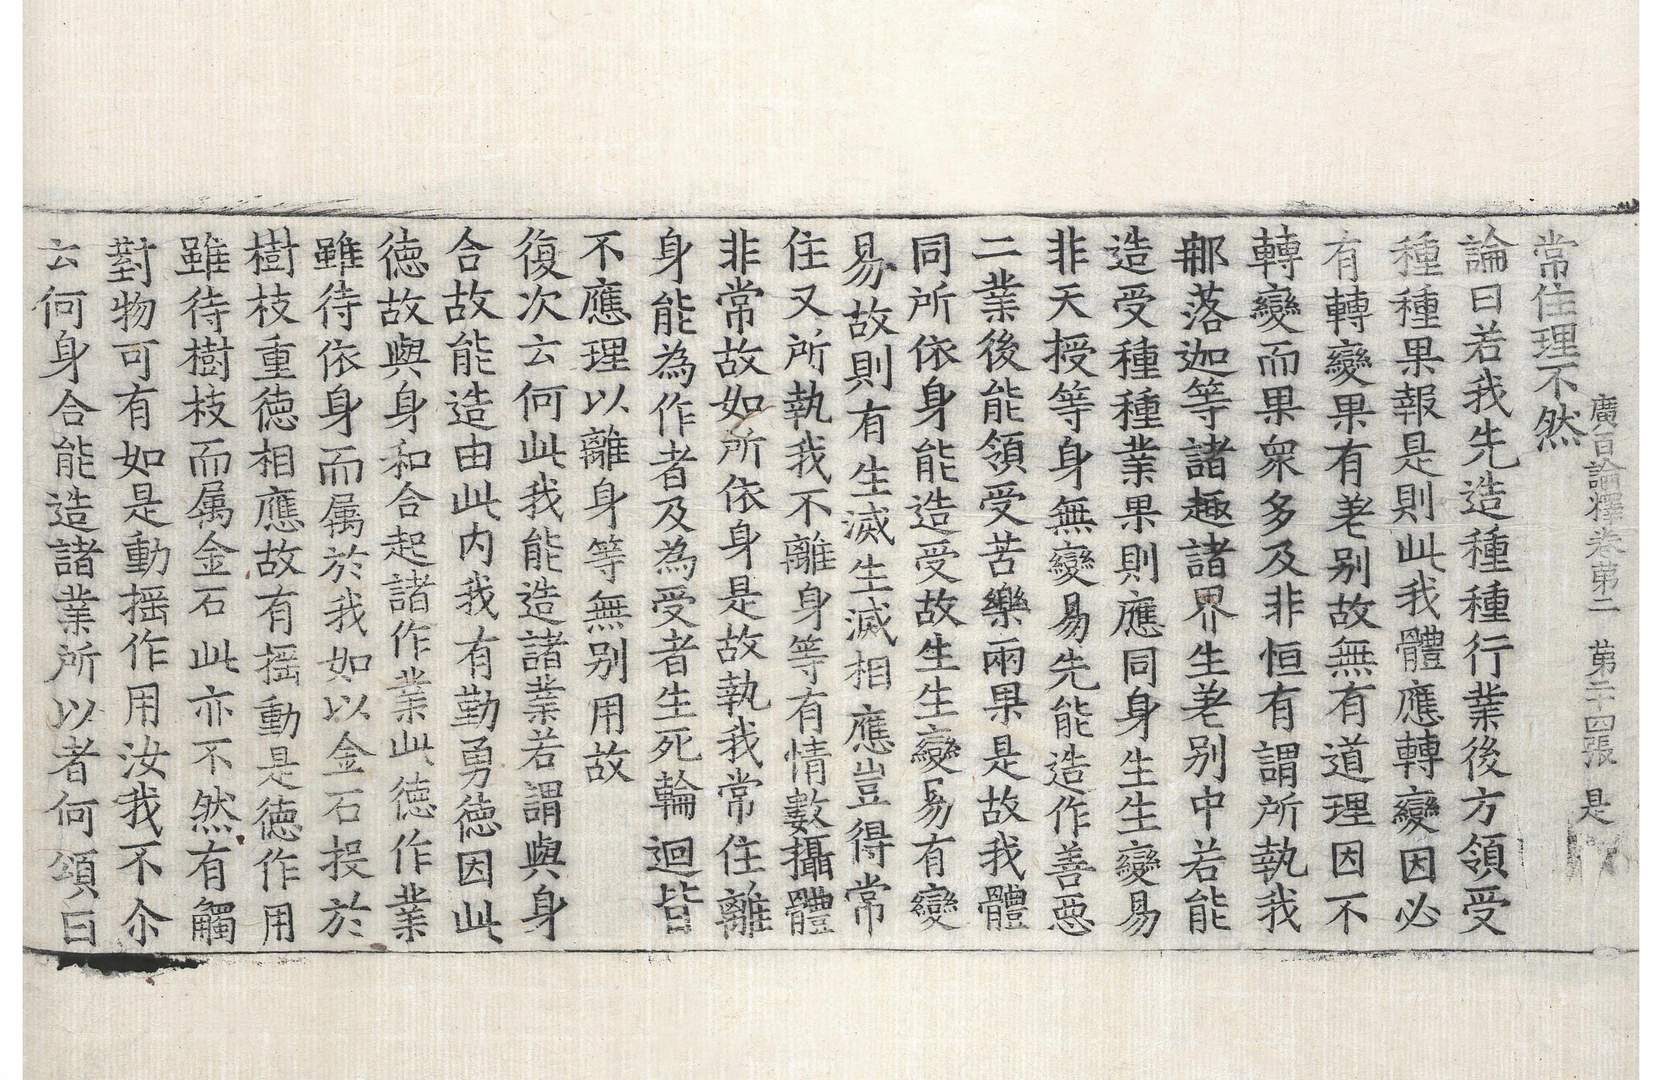 廣百論釋卷第二　第二十四張　是
常住理不然
論曰若我先造種種行業後方領受
種種果報是則此我體應轉變因必
有轉變果有差别故無有道理因不
轉變而果衆多及非恒有謂所執我
郍落迦等諸趣諸界生差别中若能
造受種種業果則應同身生生變易
非天授等身無變易先能造作善惡
二業後能領受苦樂兩果是故我體
同所依身能造受故生生變易有變
易故則有生滅生滅相應豈得常
住又所執我不離身等有情數攝體
非常故如所依身是故執我常住離
身能為作者及為受者生死輪迴皆
不應理以離身等無别用故
復次云何此我能造諸業若謂與身
合故能造由此内我有勤勇德因此
德故與身和合起諸作業此德作業
雖待依身而属於我如以金石投於
樹枝重德相應故有摇動是德作用
雖待樹枝而属金石此亦不然有觸
對物可有如是動摇作用汝我不尒
云何身合能造諸業所以者何頌曰